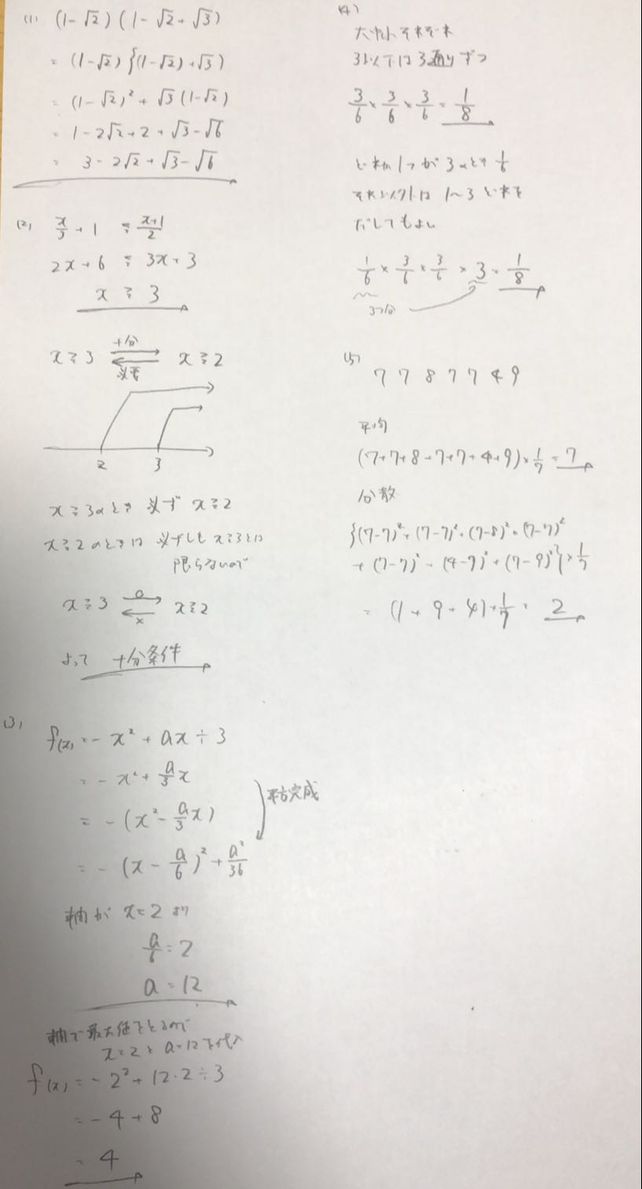 (1) (1-√2)(1-√2+√3)
= (1-√2){(1-√2)+√3}
= (1-√2)² + √3(1-√2)
= 1-2√2+2+√3-√6
= 3-2√2+√3-√6
(2) x/3 + 1 ≦ (x+1)/2
2x+6 ≦ 3x+3
x ≧ 3
x≧3 十分 必要 x≧2
2 3
x≧3のとき 必ず x≧2
x≧2のときは 必ずしも x≧3とは
限らないので
x≧3 ○ × x≧2
よって 十分条件
(3)
f(x) = -x² + ax ÷ 3
= -x² + a/3 x
= -(x² - a/3 x)
= -(x - a/6)² + a²/36
平方完成
軸が x=2 より
a/6 = 2
a = 12
軸で最大値をとるので
x=2と a=12を代入
f(x) = -2² + 12・2 ÷ 3
= -4+8
= 4
(4)
大中小 それぞれ
3以下は3通りずつ
3/6 × 3/6 × 3/6 = 1/8
どれか1つが3のとき 1/6
それ以外は 1〜3 どれを
だしてもよい
1/6 × 3/6 × 3/6 × 3 = 1/8
3つ分
(5)
7 7 8 7 7 4 9
平均
(7+7+8+7+7+4+9)×1/7 = 7
分散
{(7-7)²+(7-7)²+(7-8)²+(7-7)²
+(7-7)²+(4-7)²+(7-9)²}×1/7
= (1+9+4)×1/7 = 2